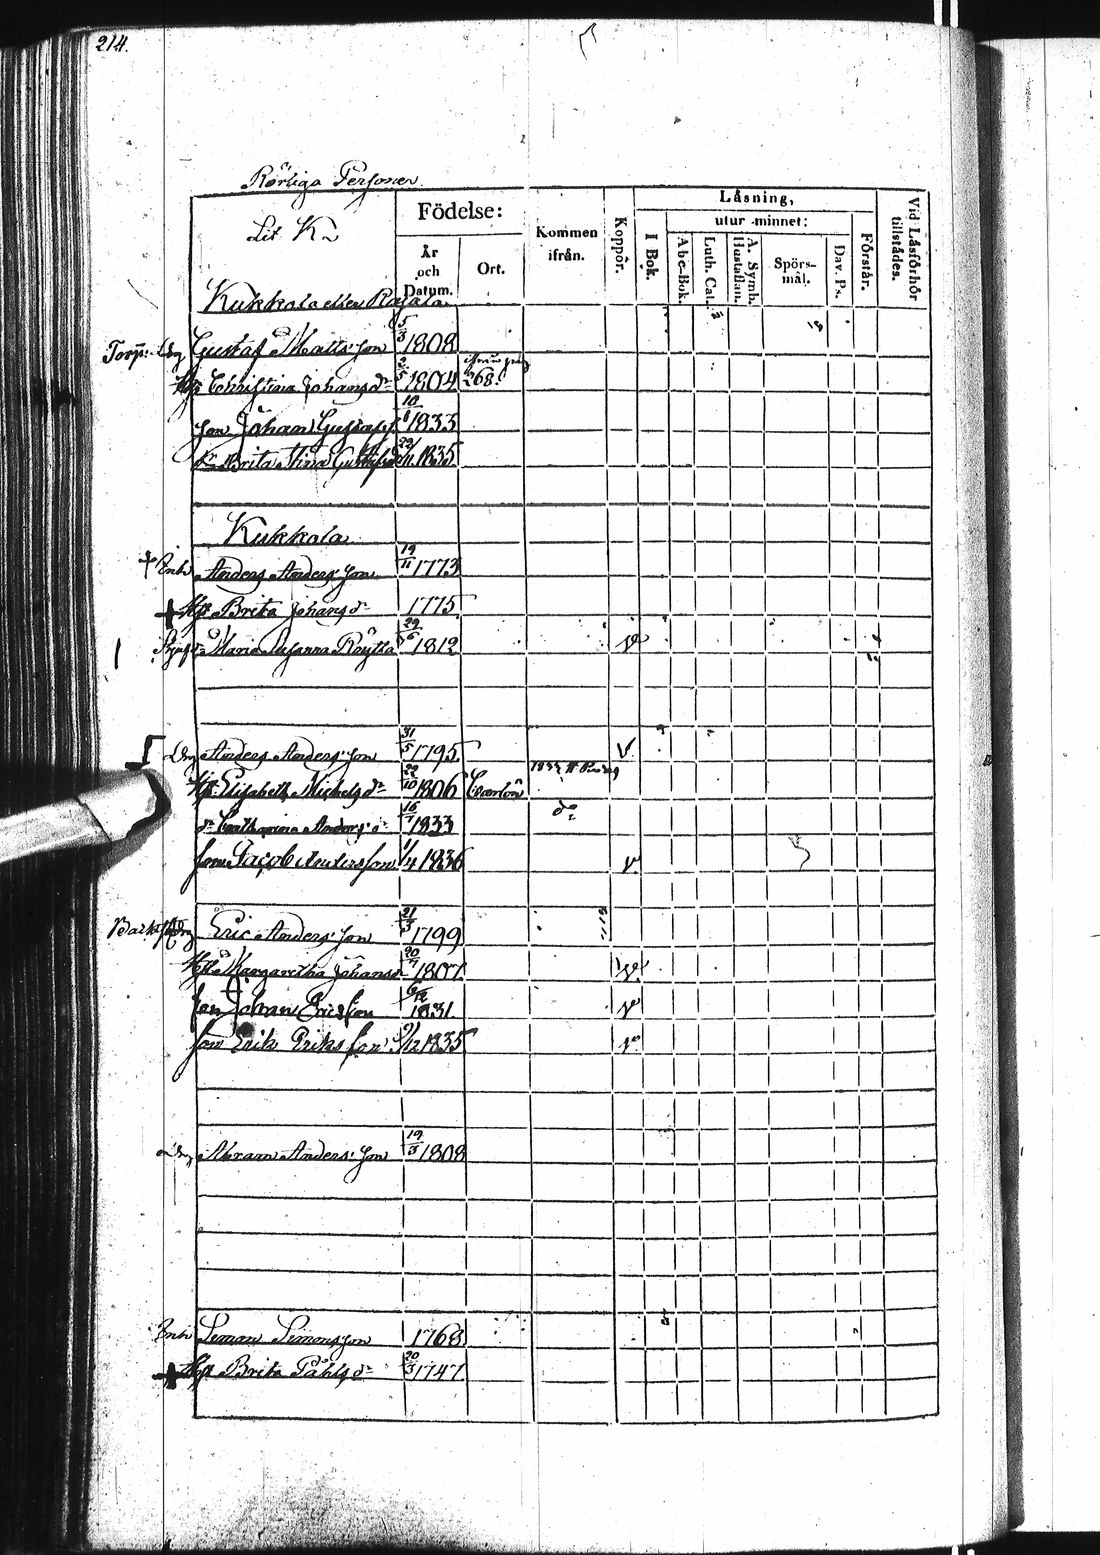 214.
Rörliga Personer.
Lit K
Födelse:
År och Datum.
Ort.
Kommen ifrån.
Koppor.
Läsning,
I Bok.
utur minnet:
Abc-Bok.
Luth. Cat.
A. Symb. Hustaflan.
Spörsmål.
Dav. Ps.
Förstår.
Vid Läsförhör tillstädes.
Kukkola eller Rajala
Torp: Gustaf Mattsson 5/3 1808
Christina Johansdr 2/5 1804 268.
Son Johan Gustafs 1833
dr Brita Stina Gustafsdr 22/11 1835
Kukkola
† Inh Anders Andersson 19/11 1773
† Brita Johansdr 1775
Maria Susanna 29/6 1812 v
Anders Andersson 31/5 1795 V
Hu Elisabeth Michelsdr 22/10 1806 Carlön
dr Catharina Andersdr 16/7 1833 do
Son Jacob Andersson 1/4 1836 v
Eric Andersson 21/3 1799
Hu Margaretha Johansdr 20/7 1807 v
Son Johan Ericsson 6/12 1831 v
Son Erik Eriksson 9/12 1835 v
Abram Andersson 19/3 1808
Inh Simon Simonsson 1768
† Brita Påhlsdr 20/3 1747